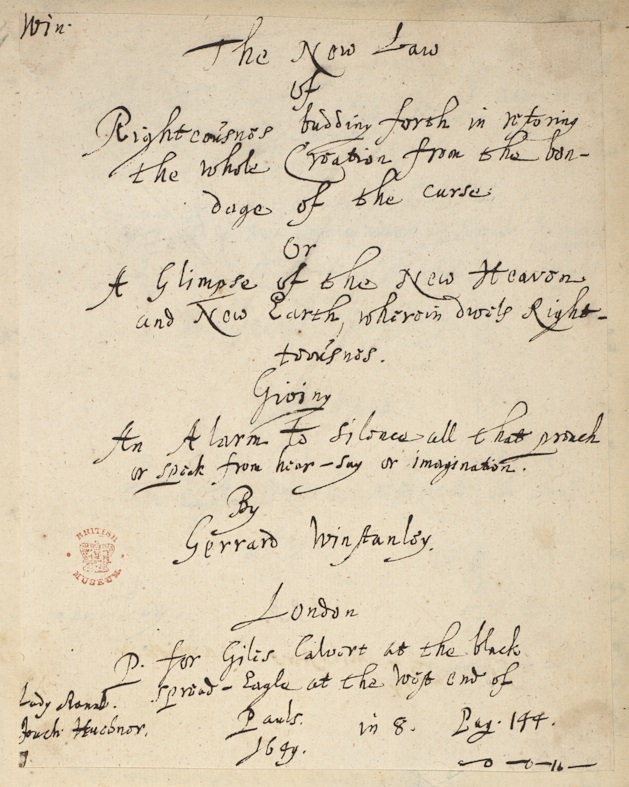 Win.
The New Law
of
Righteousnes budding forth in restoring
the whole Creation from the bon-
dage of the curse.
Or
A Glimpse of the New Heaven
and New Earth, wherein dwels Right-
teousnes.
Giving
An Alarm to silence all that preach
or speak from hear-say or imagination.
By
Gerrard Winstanley.
BRITISH
MUSEUM
London
P. for Giles Calvert at the black
spread-Eagle at the West end of
Pauls.
in 8. Pag. 144.
1649.
Lady